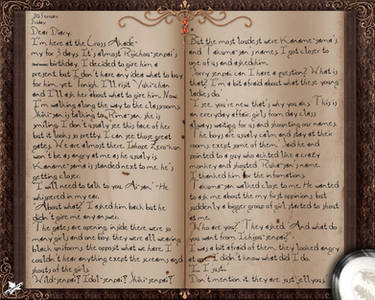 20 January
Friday
Dear Diary
I'm here at the Cross Akade-
my for 3 days. It's almost Ryichou-senpai's
birthday. I decided to give him a
present but I don't have any idea what to buy
for him, yet. Tonight, I'll visit Yuki-chan
and I'll ask her about what to give him. Now
I'm walking along the way to the classrooms.
Shiki-san is talking to Rima-san, she is
smiling. I don't usually see this face of her
but it looks so pretty. I can see those great
gates. We are almost there. Takao Zero-kun
won't be as angry at me as he usually is
Kaname-sama is standed next to me, he's
getting closer.
"I will need to talk to you Ai-san" He
whispered in my ear.
"About what?" I asked him back but he
didn't give me any answer.
The gates are opening, inside there were so
many girls and one boy, they were all wearing
black uniforms the opposit what we wear. I
couldn't hear anything exept the screams and
shouts of the girls.
"Wild-senpai! Idol-senpai! Shiki-senpai!"
But the most loudest were Kaname-sama's
and Takuma-san's names. I got closer to
one of us and asked him.
"Sorry senpai can I have a question?" "What is
that?" I'm a bit afraid about what these young
ladies do."
"I see, you're new that's why you ask. This is
an everyday affair, girls from day class
always waiting for us and shouting our names.
The boys are usually calm and stay at their
rooms, exept some of them." Said he and
pointed to a guy who acted like a crazy
monkey and shouted: Ruka-san's name.
I thanked him for the infomations.
Takuma-san walked close to me. He wanted
to ask me about the my first opinions, but
suddenly a bigger group of girl started to shout
at me.
"Who are you?" They asked. "And what do
you want from Ichijo-senpai?"
I was a bit afraid of them, they looked angry
at me. I didn't know what did I do.
"I.. I just.."
"Don't mention it, they are just silly you